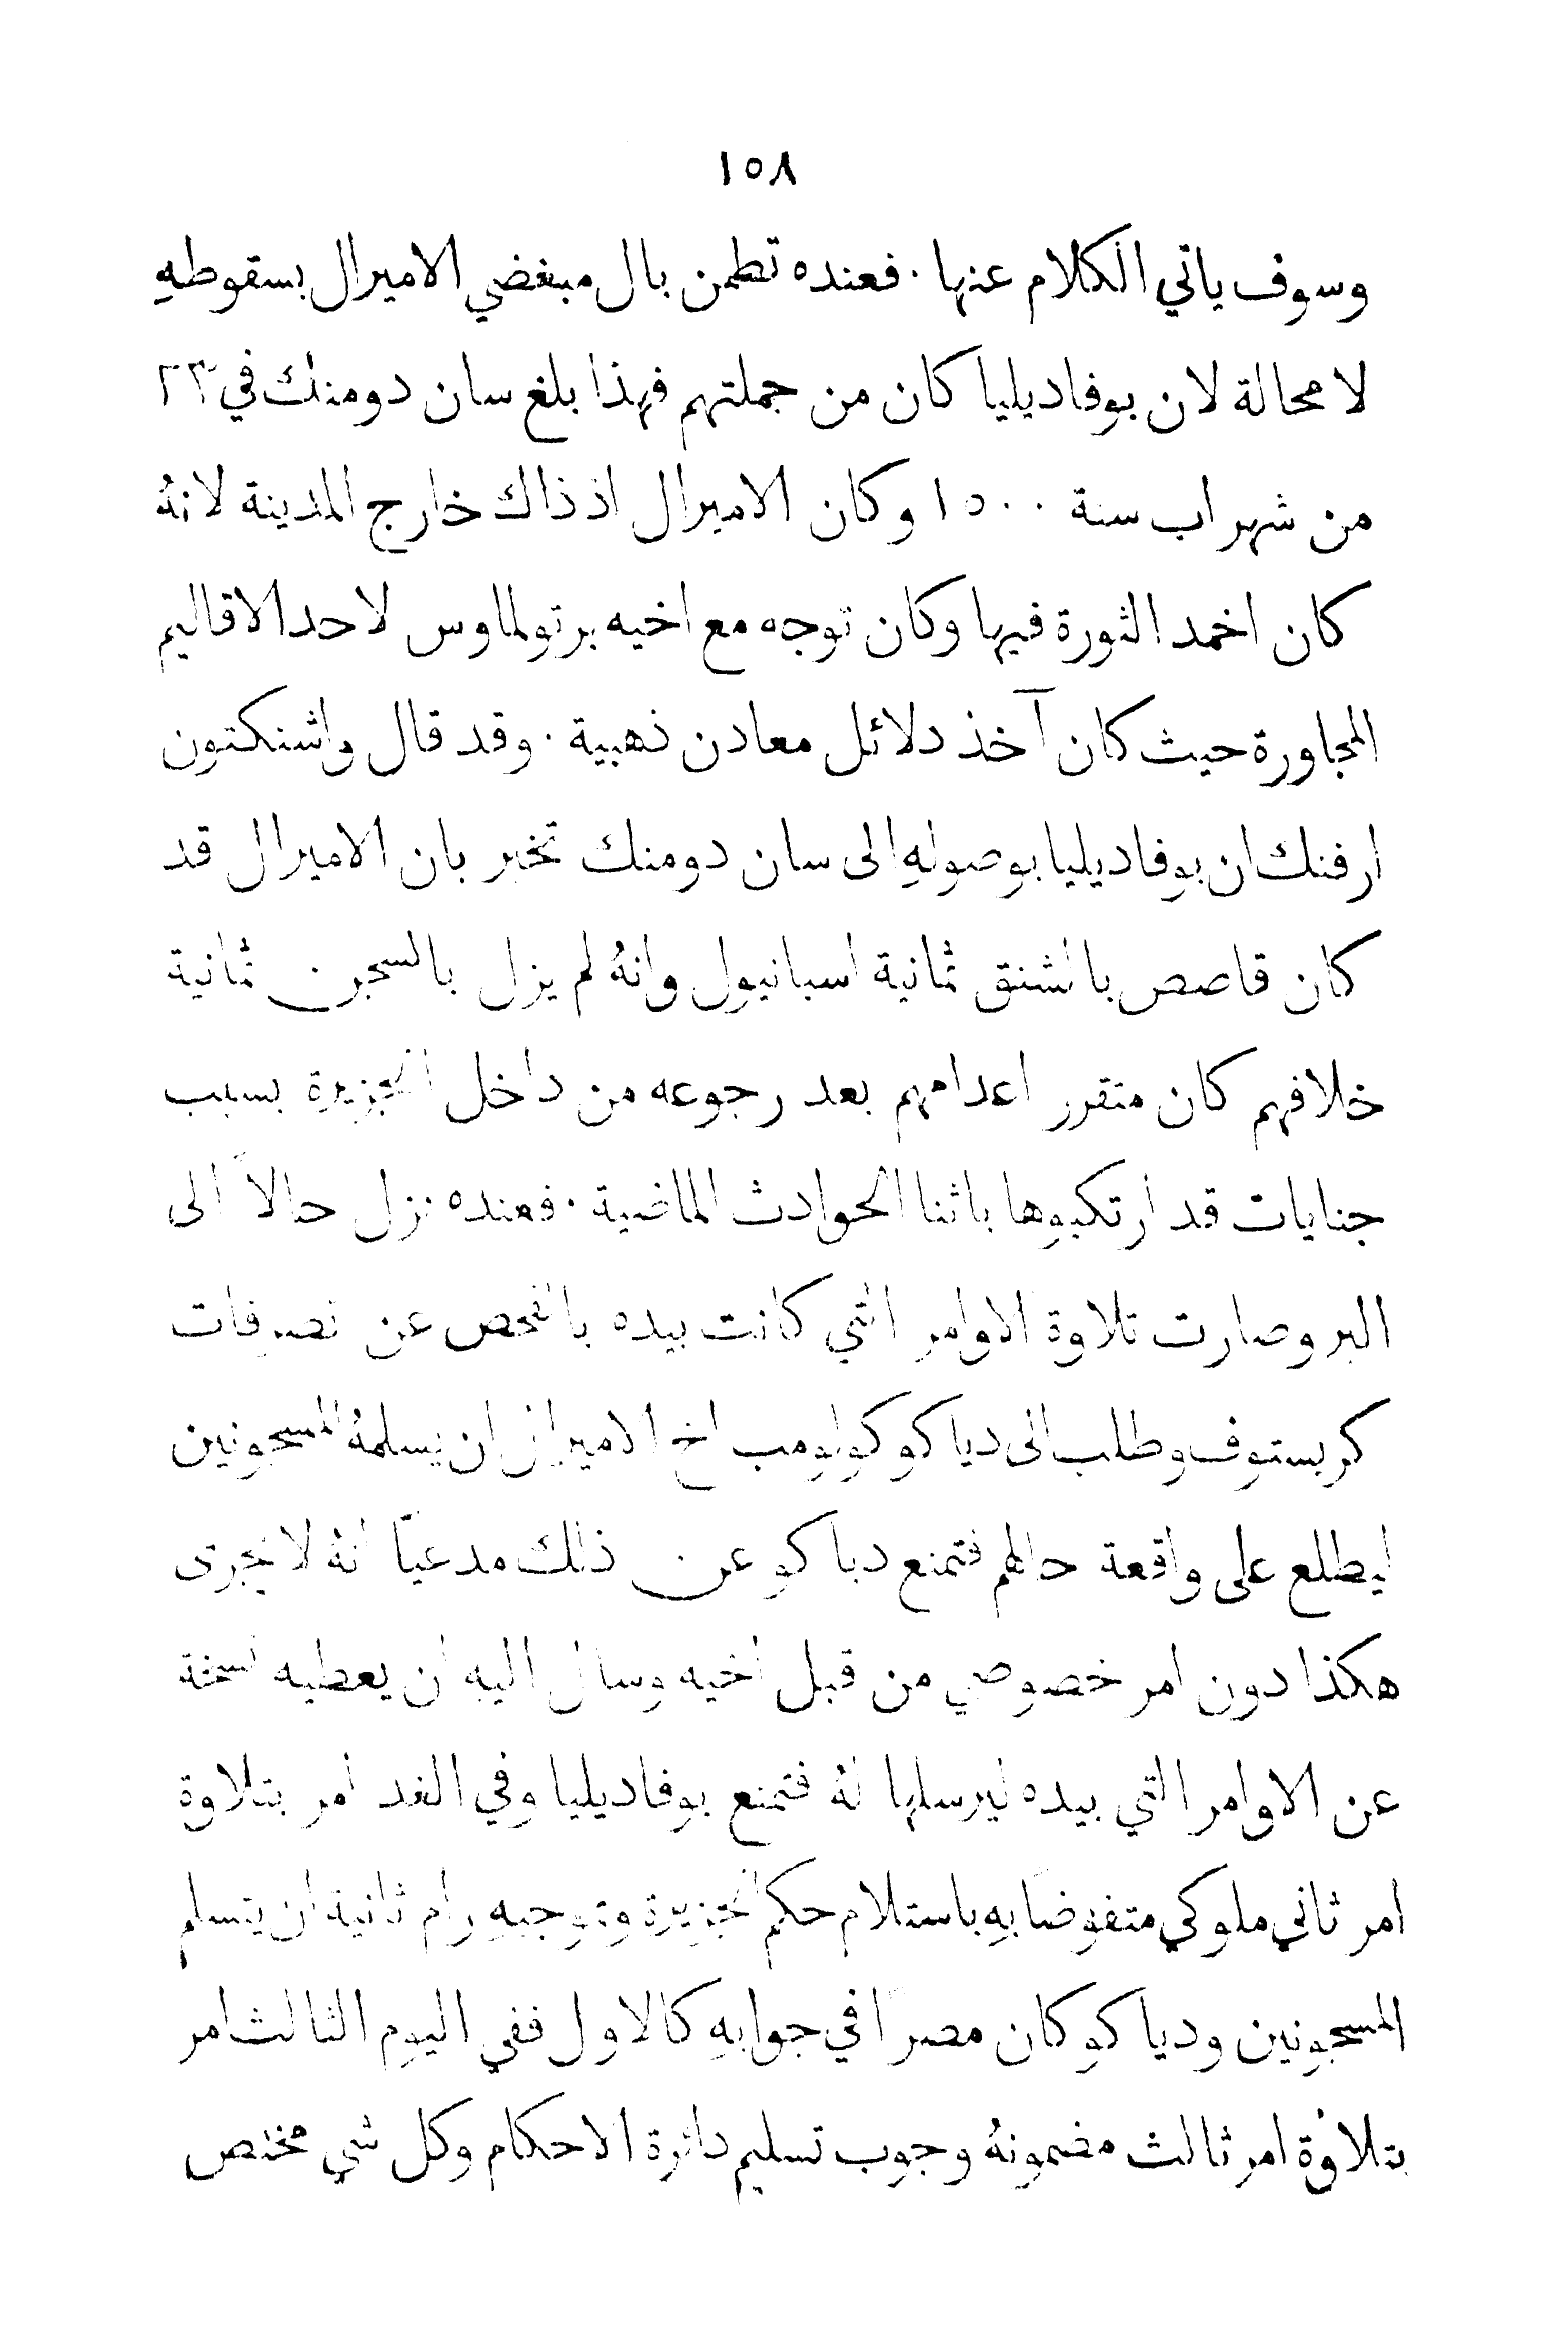 ١٥٨
وسوف ياتي الكلام عنها ٠ فعنده تطمن بال مبغضي الاميرال بسقوطهِ
لا محالة لان بوفاديليا كان من جملتهم فهذا بلغ سان دومنك في ٢٣
من شهر اب سنة ١٥٠٠ وكان الاميرال اذ ذاك خارج المدينة لانهُ
كان اخمد الثورة فيها وكان توجه مع اخيه برتولماوس لاحد الاقاليم
المجاورة حيث كان آخذ دلائل معادن ذهبية ٠ وقد قال واشنكتون
ارفنك ان بوفاديليا بوصولهِ الى سان دومنك تخبر بان الاميرال قد
كان قاصص بالشنق ثمانية اسبانيول وانهُ لم يزل بالسجن ثمانية
خلافهم كان متقرر اعدامهم بعد رجوعه من داخل الجزيرة بسبب
جنايات قد ارتكبوها باثنا الحوادث الماضية ٠ فعنده نزل حالاً الى
البر وصارت تلاوة الاوامر التي كانت بيده بالفحص عن تصرفات
كريستوف وطلب الى دياكو كولومب اخ الاميرال ان يسلمهُ المسجونين
ليطلع على واقعة حالهم فتمنع دياكو عن ذلك مدعيًا انهُ لا يجرى
هكذا دون امر خصوصي من قبل اخيه وسال اليهِ ان يعطيه نسخة
عن الاوامر التي بيده ليرسلها لهُ فتمنع بوفاديليا وفي الغد امر بتلاوة
امر ثاني ملوكي متفوضًا بهِ باستلام حكم الجزيرة وتوجيهِ رام ثانية ان يتسلم
المسجونين ودياكو كان مصرًا في جوابهِ كالاول ففي اليوم الثالث امر
بتلاوة امر ثالث مضمونهُ وجوب تسليم دائرة الاحكام وكل شي مختص